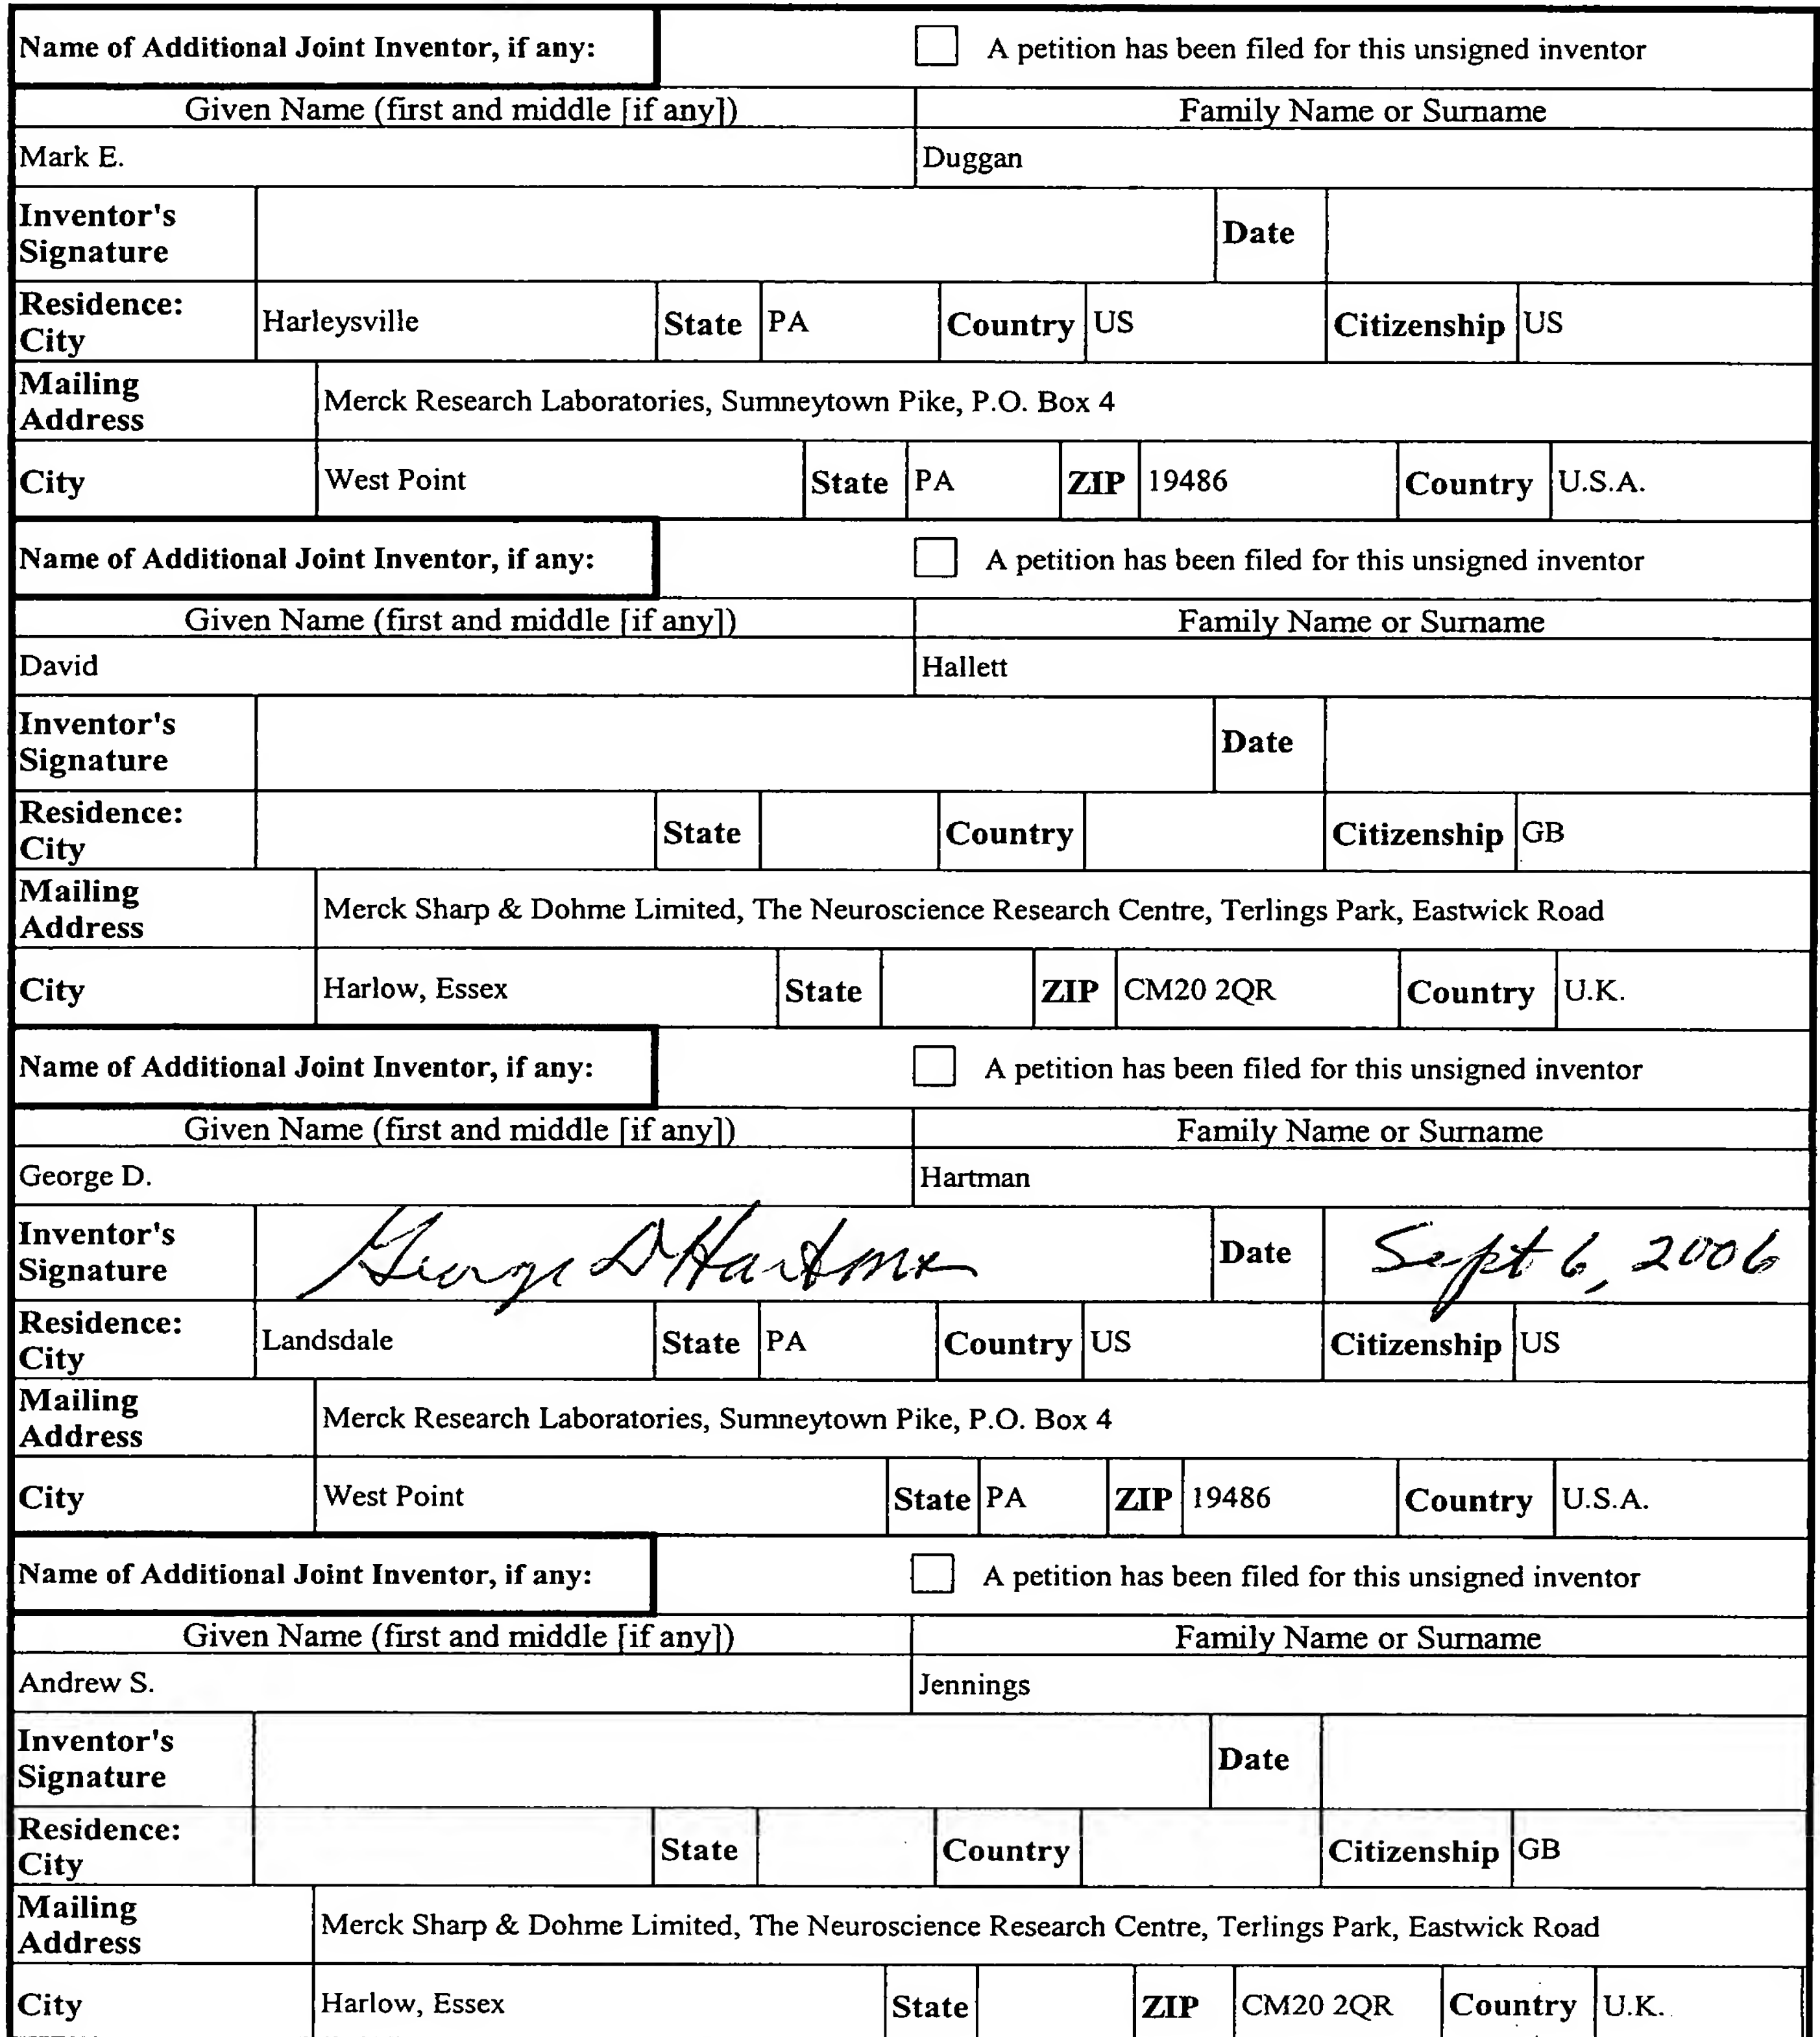 Name of Additional Joint Inventor, if any: A petition has been filed for this unsigned inventor
Given Name (first and middle [if any]) Family Name or Surname
Mark E. Duggan
Inventor's Signature Date
Residence: City Harleysville State PA Country US Citizenship US
Mailing Address Merck Research Laboratories, Sumneytown Pike, P.O. Box 4
City West Point State PA ZIP 19486 Country U.S.A.
Name of Additional Joint Inventor, if any: A petition has been filed for this unsigned inventor
Given Name (first and middle [if any]) Family Name or Surname
David Hallett
Inventor's Signature Date
Residence: City State Country Citizenship GB
Mailing Address Merck Sharp & Dohme Limited, The Neuroscience Research Centre, Terlings Park, Eastwick Road
City Harlow, Essex State ZIP CM20 2QR Country U.K.
Name of Additional Joint Inventor, if any: A petition has been filed for this unsigned inventor
Given Name (first and middle [if any]) Family Name or Surname
George D. Hartman
Inventor's Signature George D Hartman Date Sept 6, 2006
Residence: City Landsdale State PA Country US Citizenship US
Mailing Address Merck Research Laboratories, Sumneytown Pike, P.O. Box 4
City West Point State PA ZIP 19486 Country U.S.A.
Name of Additional Joint Inventor, if any: A petition has been filed for this unsigned inventor
Given Name (first and middle [if any]) Family Name or Surname
Andrew S. Jennings
Inventor's Signature Date
Residence: City State Country Citizenship GB
Mailing Address Merck Sharp & Dohme Limited, The Neuroscience Research Centre, Terlings Park, Eastwick Road
City Harlow, Essex State ZIP CM20 2QR Country U.K.